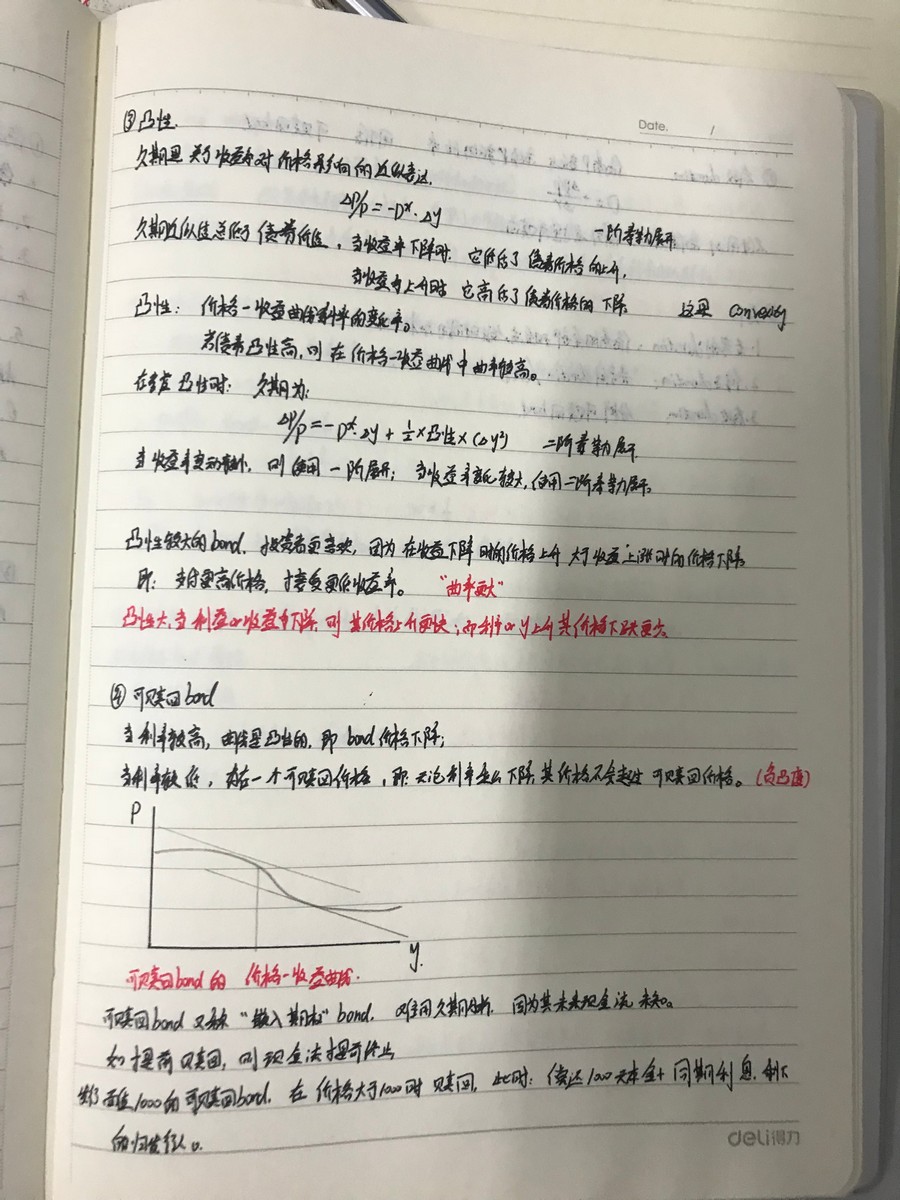 Date. /
③凸性.
久期是关于收益率对价格影响的近似表达.
ΔP/P = -D*·Δy
一阶泰勒展开
久期近似值总低于债券价值，当收益率下降时，它低估了债券价格的上升,
当收益率上升时 它高估了债券价格的下降. 这是 convexity
凸性：价格—收益曲线斜率的变化率。
若债券凸性高，则在价格—收益曲线中曲率较高。
在考虑凸性时：久期为:
ΔP/P = -D*·Δy + ½×凸性×(Δy²) 二阶泰勒展开
当收益率变动较小，则使用一阶展开；当收益率变化较大，使用二阶泰勒展开。
凸性较大的bond，投资者更喜欢，因为在收益下降时的价格上升大于收益上涨时的价格下降。
即：支付更高价格，接受更低收益率。 "曲率更大"
凸性大，当利率or收益率下降，则其价格上升更快；而利率or y上升其价格下跌更少。
④可赎回bond
当利率较高，曲线是凸性的，即bond价格下降；
当利率较低，存在一个可赎回价格，即：无论利率怎么下降，其价格不会超过可赎回价格。(负凸值)
P
y.
可赎回bond的 价格—收益曲线.
可赎回bond又称"嵌入期权"bond. 难用久期分析. 因为其未来现金流未知。
如提前赎回，则现金流提前停止
发行面值1000的可赎回bond. 在价格大于1000时赎回，此时：偿还1000元本金+同期利息. 剩下
的归发行人。
deli得力